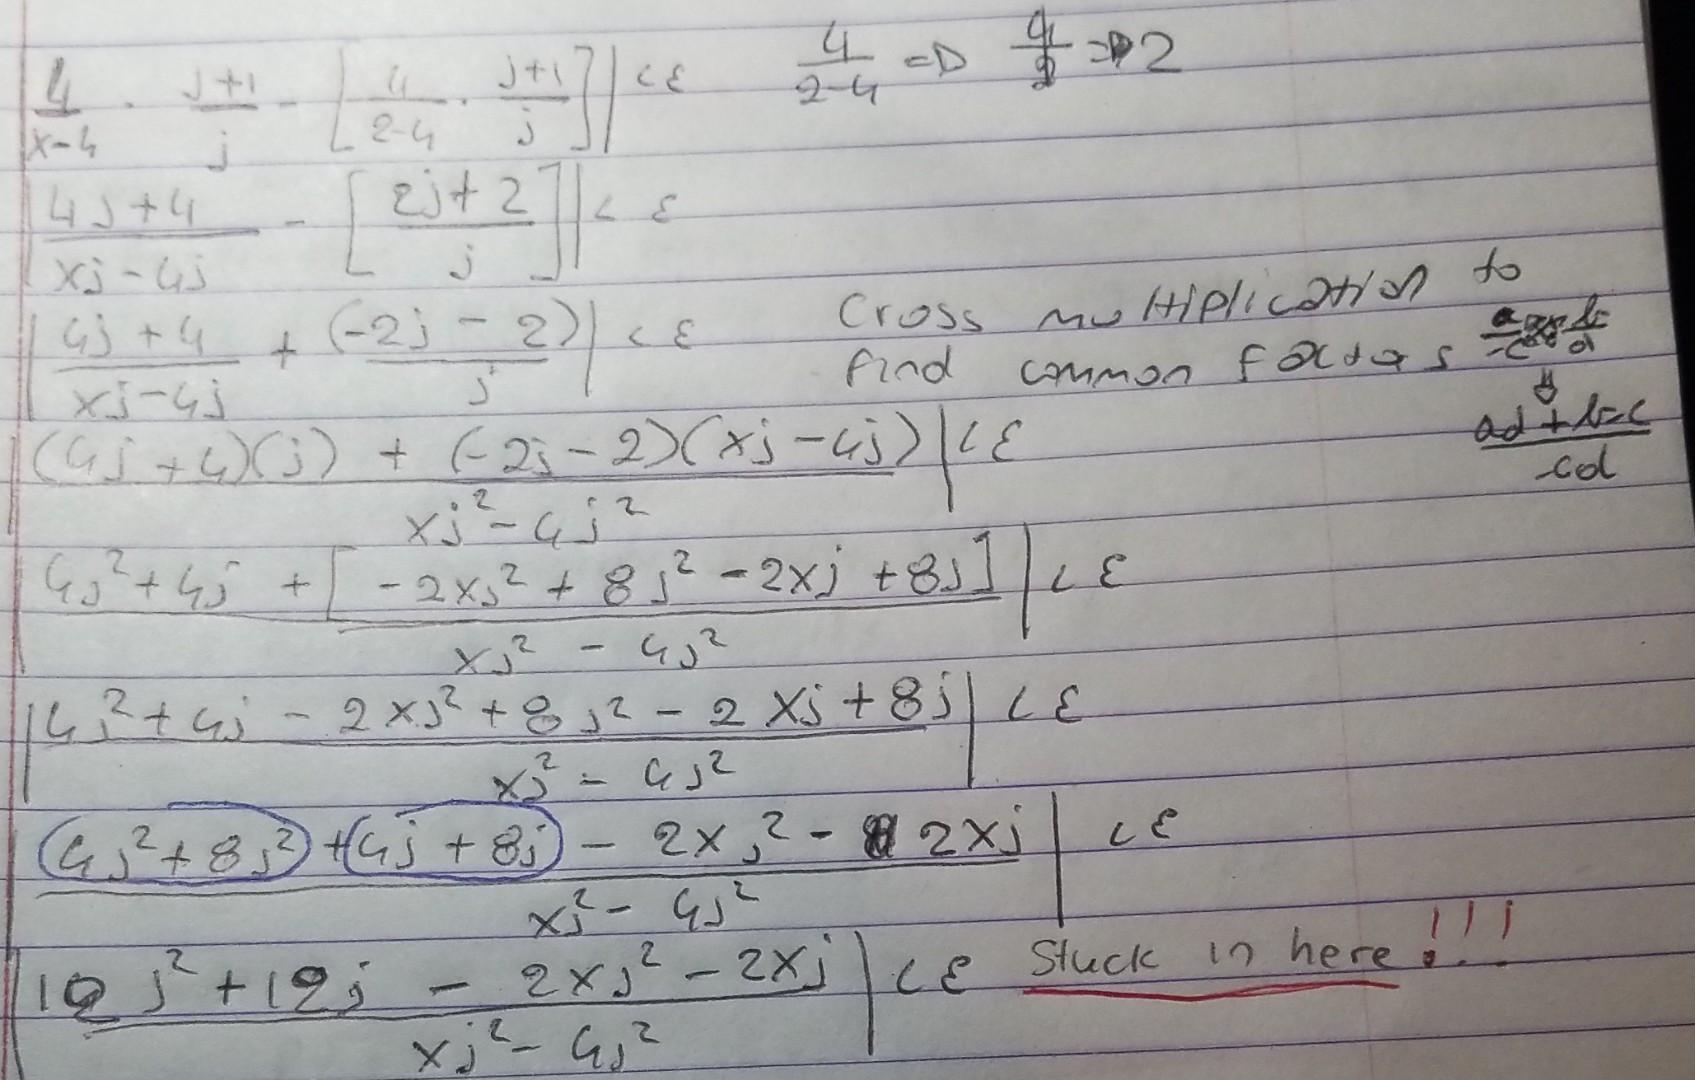 4/(x-4) · (j+1)/j - [4/(2-4) · (j+1)/j]| < ε    4/(2-4) => 4/2 => 2
|(4j+4)/(xj-4j) - [(2j+2)/j]| < ε
|(4j+4)/(xj-4j) + (-2j-2)/j| < ε    Cross multiplication to
find common factors
(ad+bc)/cd
|((4j+4)(j) + (-2j-2)(xj-4j))/(xj²-4j²)| < ε
|(4j²+4j + [-2xj²+8j²-2xj+8j])/(xj²-4j²)| < ε
|(4j²+4j-2xj²+8j²-2xj+8j)/(xj²-4j²)| < ε
|((4j²+8j²)+(4j+8j)-2xj²-2xj)/(xj²-4j²)| < ε
|(12j²+12j-2xj²-2xj)/(xj²-4j²)| < ε    Stuck in here!!!